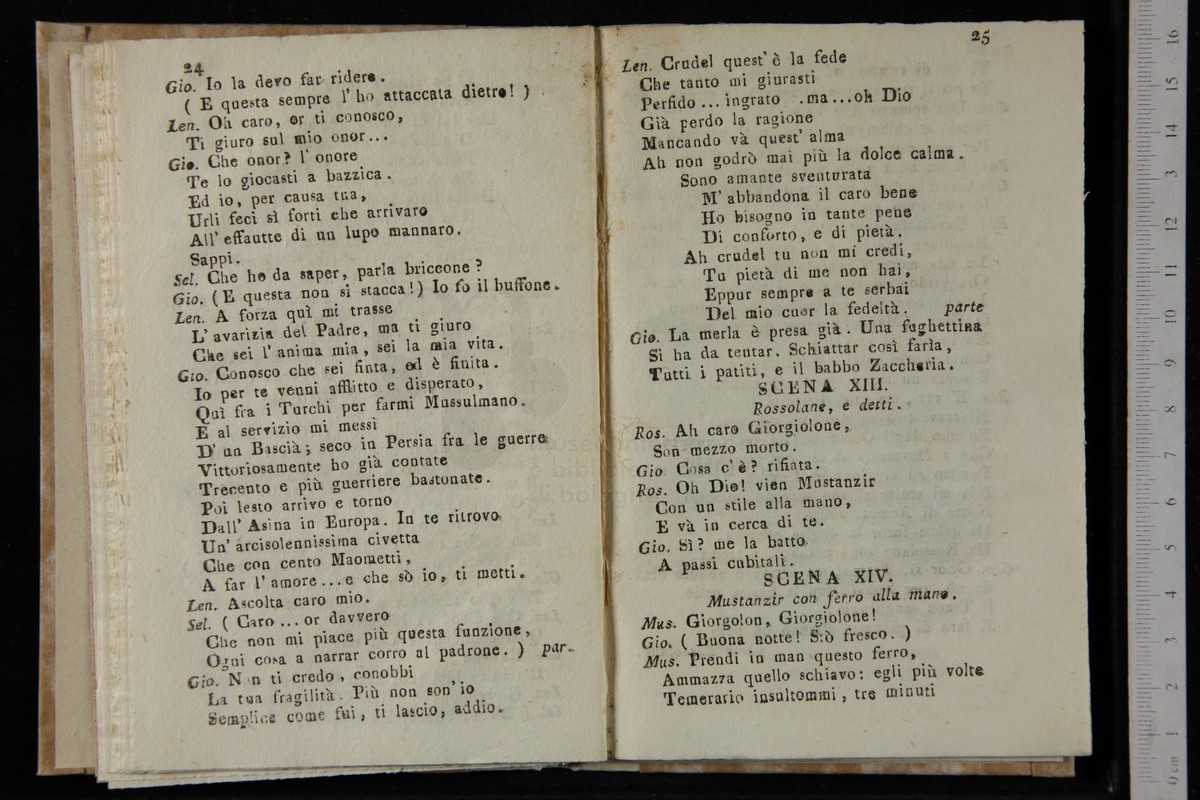 24
Gio. Io la devo far ridere.
( E questa sempre l' ho attaccata dietro! )
Len. Oh caro, or ti conosco,
Ti giuro sul mio onor...
Gio. Che onor? l' onore
Te lo giocasti a bazzica.
Ed io, per causa tua,
Urli feci sì forti che arrivaro
All' effautte di un lupo mannaro.
Sappi.
Sel. Che ho da saper, parla briccone?
Gio. (E questa non si stacca!) Io fo il buffone.
Len. A forza quì mi trasse
L' avarizia del Padre, ma ti giuro
Che sei l' anima mia, sei la mia vita.
Gio. Conosco che sei finta, ed è finita.
Io per te venni afflitto e disperato,
Quì fra i Turchi per farmi Mussulmano.
E al servizio mi messi
D' un Bascià; seco in Persia fra le guerre
Vittoriosamente ho già contate
Trecento e più guerriere bastonate.
Poi lesto arrivo e torno
Dall' Asina in Europa. In te ritrovo
Un' arcisolennissima civetta
Che con cento Maometti,
A far l' amore... e che sò io, ti metti.
Len. Ascolta caro mio.
Sel. ( Caro... or davvero
Che non mi piace più questa funzione,
Ogni cosa a narrar corro al padrone. ) par.
Gio. Non ti credo, conobbi
La tua fragilità. Più non son' io
Semplice come fui, ti lascio, addio.
25
Len. Crudel quest' è la fede
Che tanto mi giurasti
Perfido... ingrato .ma...oh Dio
Già perdo la ragione
Mancando và quest' alma
Ah non godrò mai più la dolce calma.
Sono amante sventurata
M' abbandona il caro bene
Ho bisogno in tante pene
Di conforto, e di pietà.
Ah crudel tu non mi credi,
Tu pietà di me non hai,
Eppur sempre a te serbai
Del mio cuor la fedeltà. parte
Gio. La merla è presa già. Una fughettina
Si ha da tentar. Schiattar così farìa,
Tutti i patiti, e il babbo Zaccheria.
SCENA XIII.
Rossolane, e detti.
Ros. Ah caro Giorgiolone,
Son mezzo morto.
Gio Cosa c' è? rifiata.
Ros. Oh Dio! vien Mustanzir
Con un stile alla mano,
E và in cerca di te.
Gio. Sì? me la batto
A passi cubitali.
SCENA XIV.
Mustanzir con ferro alla mano.
Mus. Giorgolon, Giorgiolone!
Gio. ( Buona notte! Stò fresco. )
Mus. Prendi in man questo ferro,
Ammazza quello schiavo: egli più volte
Temerario insultommi, tre minuti